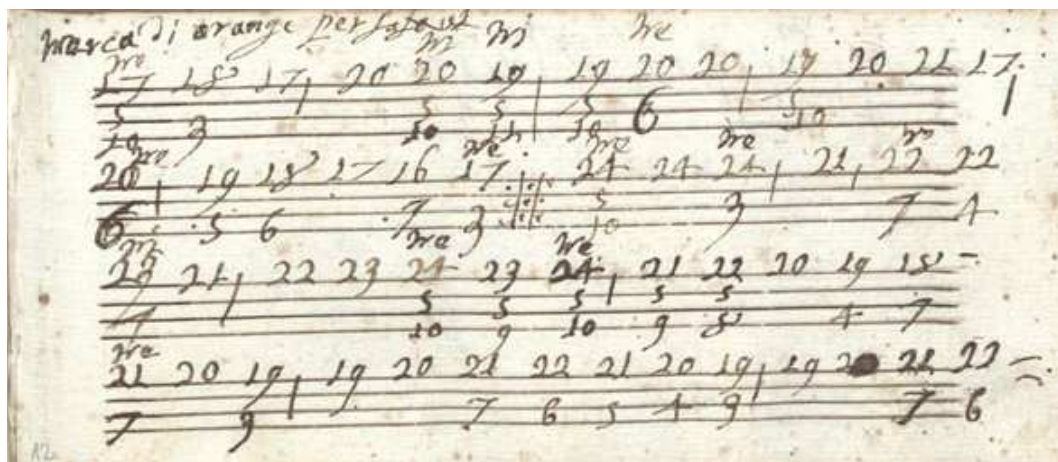 marca di orange per fafaut
mo m mj we
17 18 17 20 20 19 19 20 20 19 20 21 17
5 5 5 5 6 5
10 3 10 11 10 10
mo we we we mo
20 19 18 17 16 17 24 24 24 21 22 22
6 5 6 7 3 5 10 3 7 4
we we
23 21 22 23 24 23 24 21 22 20 19 18
5 5 5 5 5
4 10 9 10 9 8 4 7
we
21 20 19 19 20 21 22 21 20 19 19 21 22
7 9 7 6 5 4 9 7 6
12